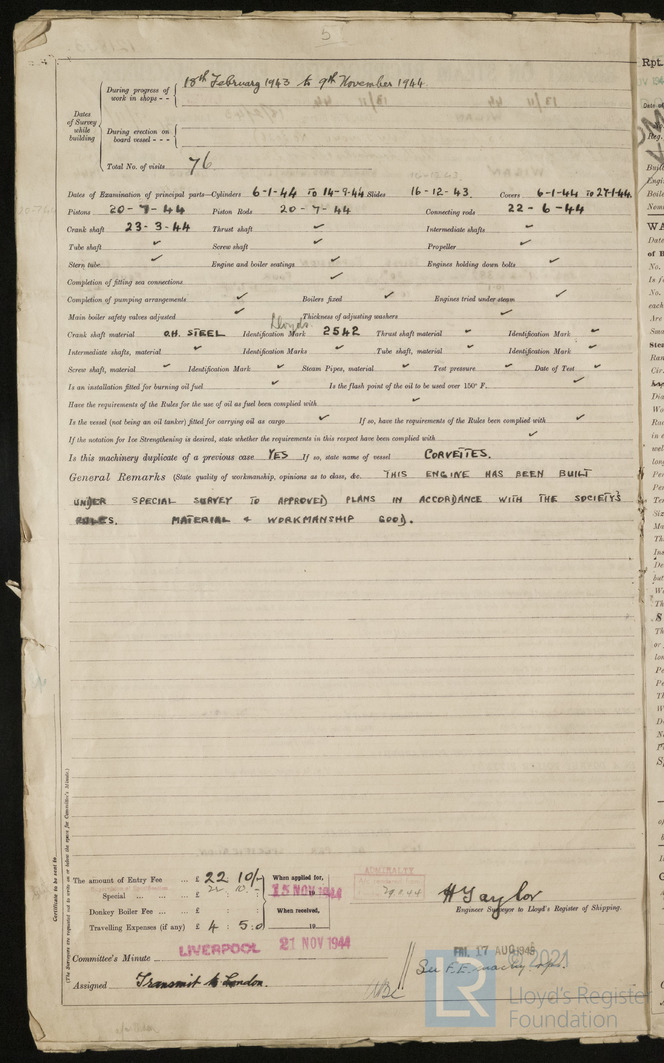 5
Rpt.
18th February 1943 to 9th November 1944
Dates of Survey while building
During progress of work in shops - -
During erection on board vessel - - -
Total No. of visits 76
Dates of Examination of principal parts—Cylinders 6-1-44 TO 14-9-44 Slides 16-12-43. Covers 6-1-44 TO 27-1-44
Pistons 20-7-44 Piston Rods 20-7-44 Connecting rods 22-6-44
Crank shaft 23-3-44 Thrust shaft ✓ Intermediate shafts ✓
Tube shaft ✓ Screw shaft ✓ Propeller ✓
Stern tube ✓ Engine and boiler seatings ✓ Engines holding down bolts ✓
Completion of fitting sea connections ✓
Completion of pumping arrangements ✓ Boilers fixed ✓ Engines tried under steam ✓
Main boiler safety valves adjusted ✓ Thickness of adjusting washers ✓
Crank shaft material O.H. STEEL Identification Mark Lloyds 2542 Thrust shaft material ✓ Identification Mark ✓
Intermediate shafts, material ✓ Identification Marks ✓ Tube shaft, material ✓ Identification Mark ✓
Screw shaft, material ✓ Identification Mark ✓ Steam Pipes, material ✓ Test pressure ✓ Date of Test ✓
Is an installation fitted for burning oil fuel ✓ Is the flash point of the oil to be used over 150° F. ✓
Have the requirements of the Rules for the use of oil as fuel been complied with ✓
Is the vessel (not being an oil tanker) fitted for carrying oil as cargo ✓ If so, have the requirements of the Rules been complied with ✓
If the notation for Ice Strengthening is desired, state whether the requirements in this respect have been complied with ✓
Is this machinery duplicate of a previous case YES If so, state name of vessel CORVETTES.
General Remarks (State quality of workmanship, opinions as to class, &c. THIS ENGINE HAS BEEN BUILT
UNDER SPECIAL SURVEY TO APPROVED PLANS IN ACCORDANCE WITH THE SOCIETY'S
RULES. MATERIAL & WORKMANSHIP GOOD.
Certificate to be sent to
(The Surveyors are requested not to write on or below the space for Committee's Minute.)
The amount of Entry Fee ... £ 22 10/-
Special ... ... £ 22 : 10 : -
Donkey Boiler Fee ... ... £ : :
Travelling Expenses (if any) £ 4 : 5 : 0
When applied for,
15 NOV 1944
When received,
19
ADMIRALTY
H Taylor
Engineer Surveyor to Lloyd's Register of Shipping.
LIVERPOOL 21 NOV 1944
Committee's Minute
FRI. 17 AUG 1945
See F.E. machy rpt.
Assigned Transmit to London.
© 2021
LR
Lloyd's Register
Foundation